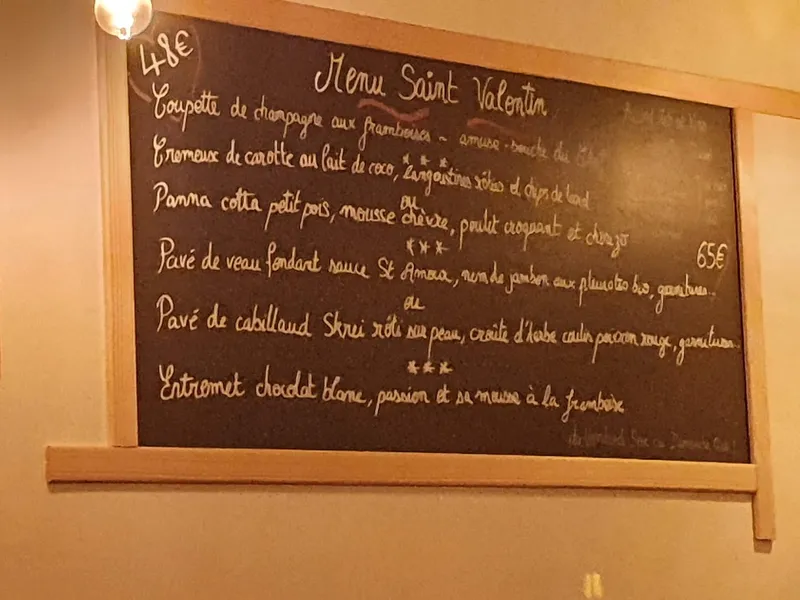 48€
Menu Saint Valentin
Coupette de champagne aux framboises ~ amuse-bouche du
***
Cremeux de carotte au lait de coco, langoustines rôties et chips de lard
ou
Panna cotta petit pois, mousse chèvre, poulet croquant et chorizo
***
65€
Pavé de veau fondant sauce St Amour, nem de jambon aux pleurotes bio, garnitures...
ou
Pavé de cabillaud Skrei rôti sur peau, croûte d'herbe coulis poivron rouge, garnitures...
***
Entremet chocolat blanc, passion et sa mousse à la framboise